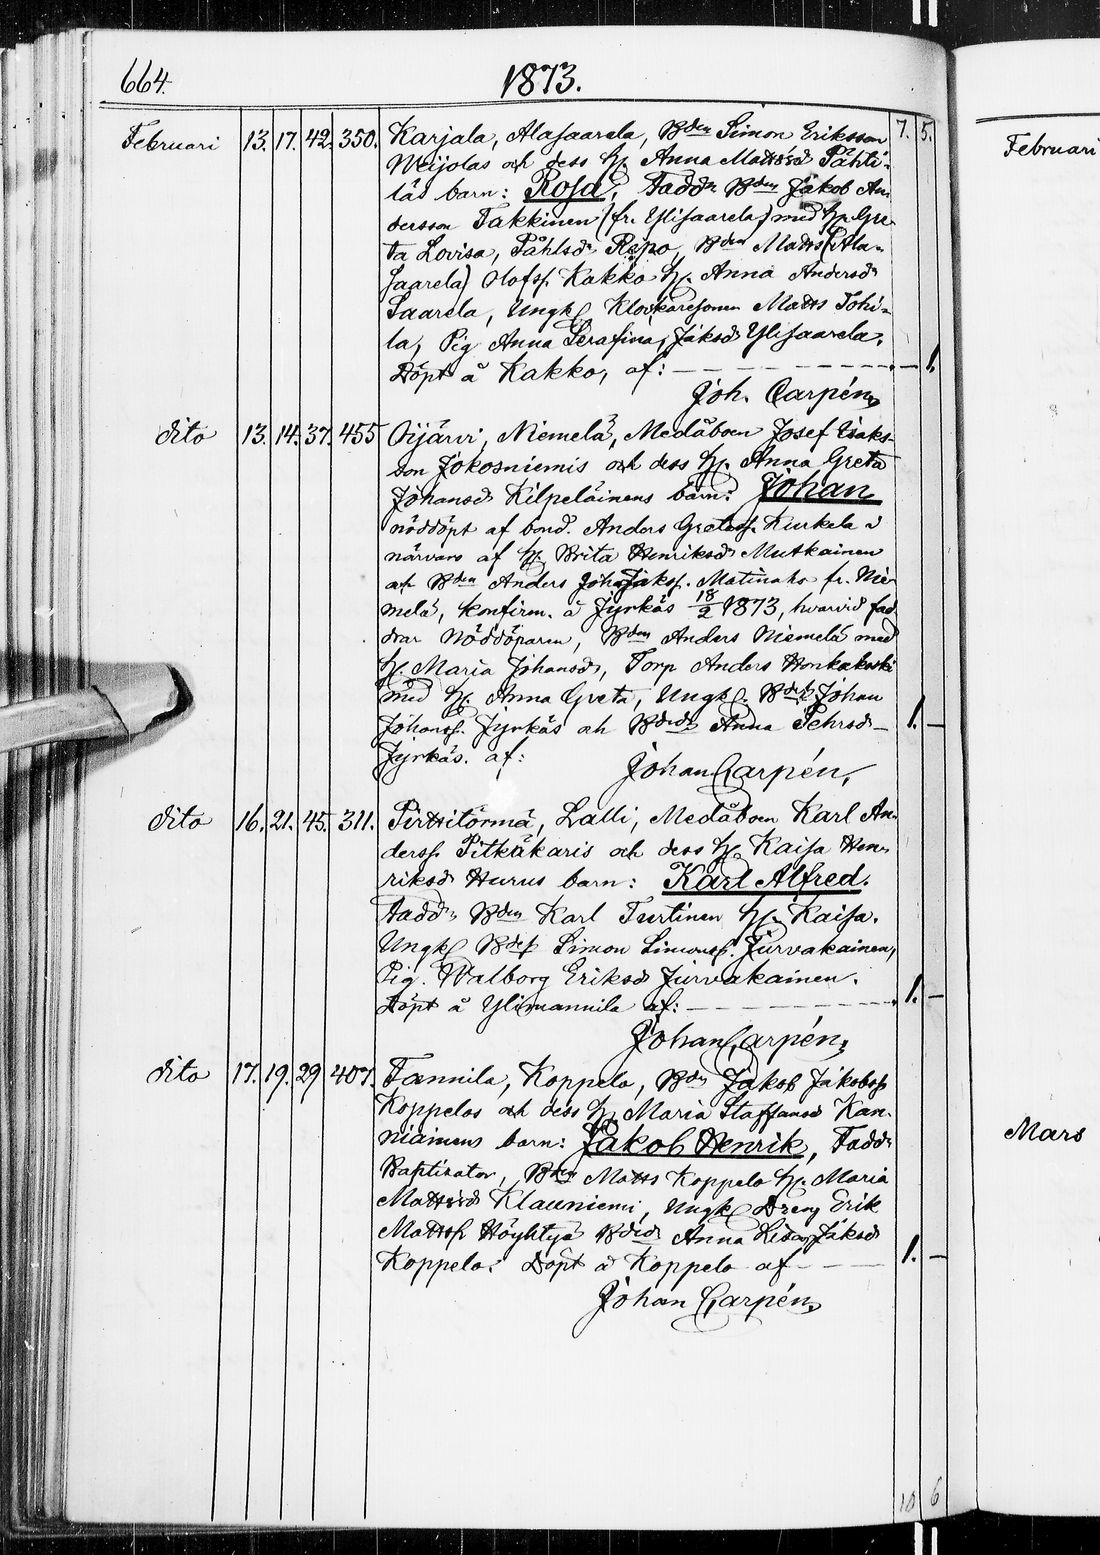 664.
1873.
Februari 13. 17. 42. 350. Karjala, Alasaarela, Bden Simon Eriksson 7. 5.
Weijolas och dess h. Anna Mattsd Påhti-
läs barn: Rosa, Fadd. Bden Jakob An-
dersson Takkinen (fr. Ylisaarela) med h. Gre-
ta Lovisa, Påhlsdr Repo, Bden Matts (Ala-
saarela) Olofss. Kakko h. Anna Andersdr
Saarela, Ungk Klockaresonen Matts Tohi-
la, Pig Anna Serafina, Jaksdr Ylisaarela.
Döpt å Kakko, af: 1.
Joh. Carpén,
dito 13. 14. 37. 455 Oijärvi, Niemelä, Medåboen Josef Isaks-
son Jokosniemis och dess h. Anna Greta
Johansdr Kilpeläinens barn: Johan
nöddöpt af bond. Anders Gretess. Kurkela i
närvaro af h. Brita Henriksdr Mutkainen
och Bden Anders Jakss. Matinaho fr. Nie
melä, konfirm. å Jyrkäs 18/2 1873, hvarvid fad
drar Nöddöparen, Bden Anders Niemelä med
h. Maria Johansdr, Torp Anders Honkakoski
med h. Anna Greta, Ungk. Bdes Johan
Johanss. Jyrkäs och Bdedr Anna Pehrsdr 1. –
Jyrkäs. af:
Johan Carpén,
dito 16. 21. 45. 311. Pirttitörmä, Lalli, Medåboen Karl An-
derss. Pitkäkaris och dess h. Kaisa Hen-
riksdr Hurus barn: Karl Alfred.
Fadd. Bden Karl Turtinen h. Kaisa.
Ungk Bdes Simon Simonss. Jurvakainen,
Pig. Walborg Eriksdr Jurvakainen.
Döpt å Ylimannila af: 1. –
Johan Carpén,
dito 17. 19. 29 407. Tannila, Koppelo, Bdn Jakob Jakobss
Koppelos och dess h. Maria Staffansd Kan-
niainens barn: Jakob Henrik, Fadd:
Baptisator, Bden Matts Koppelo h. Maria
Mattsdr Klauniemi, Ungk Dreng Erik
Mattss Höyhtyä Bdedr Anna Lisa Jaksdr
Koppelo. Döpt å Koppelo af 1. –
Johan Carpén,
10 6
Februari
Mars